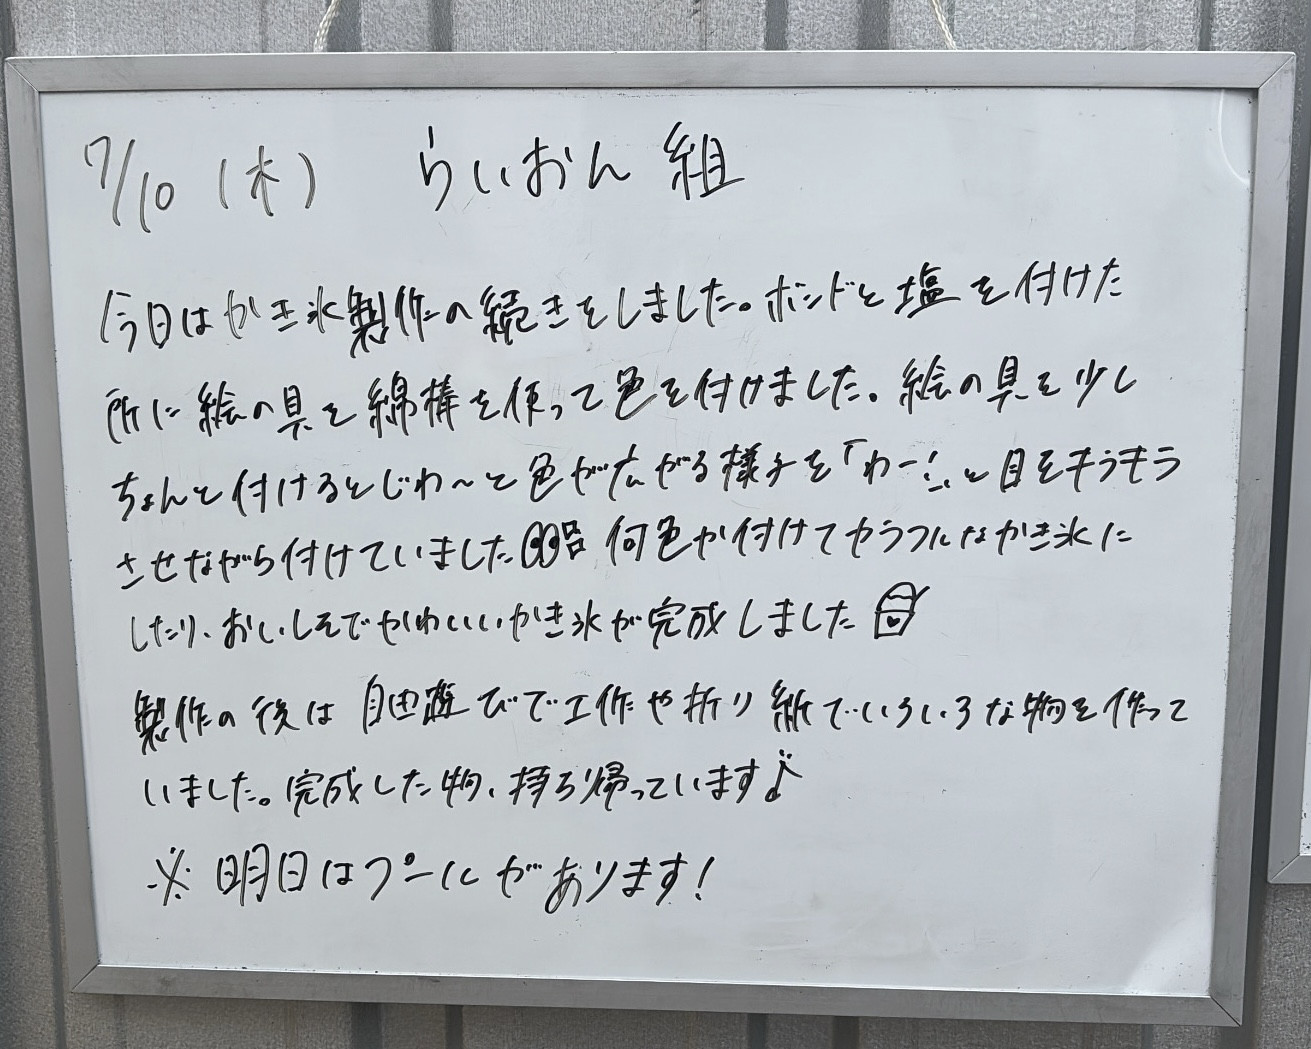 7/10 (木) らいおん組
今日はかき氷製作の続きをしました。ボンドと塩を付けた
所に絵の具を綿棒を使って色を付けました。絵の具を少し
ちょんと付けるとじわ〜と色が広がる様子を「わー!」と目をキラキラ
させながら付けていました 何色か付けてカラフルなかき氷に
したり、おいしそでかわいいかき氷が完成しました
製作の後は自由遊びで工作や折り紙でいろいろな物を作って
いました。完成した物、持ち帰っています♪
※明日はプールがあります!